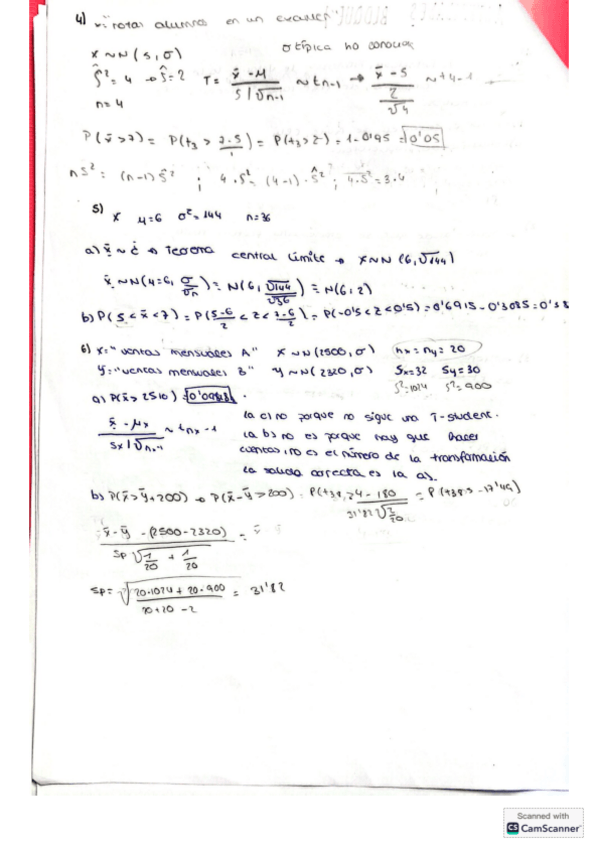 4) x="notas alumnos en un examen"
x ~ N (5, σ) σ típica no conocida
Ŝ² = 4 → Ŝ = 2 T = x̄ - μ / S/√n-1 ~ t n-1 → x̄ - 5 / 2/√4 ~ t 4-1
n = 4
P(x̄ > 7) = P(t₃ > 7-5 / 1) = P(t₃ > 2) = 1 - 0'95 = 0'05
n S² = (n-1) Ŝ² ; 4·S² = (4-1)·Ŝ² ; 4·S² = 3·4
5) x μ=6 σ²=144 n=36
a) x̄ ~ ¿ → Teorema central límite → x ~ N (6, √144)
x̄ ~ N (μ=6, σ/√n) = N (6, √144/√36) = N (6, 2)
b) P(5 < x̄ < 7) = P(5-6/2 < z < 7-6/2) = P(-0'5 < z < 0'5) = 0'6915 - 0'3085 = 0'38
6) x = "ventas mensuales A" x ~ N (2500, σ) nx = ny = 20
y = "ventas mensuales B" y ~ N (2320, σ) Sx=32 Sy=30
S²=1024 S²=900
a) P(x̄ > 2510)
x̄ - μx / Sx/√n-1 ~ t nx-1
la c) no porque no sigue una T-student.
la b) no es porque hay que hacer
cuentas, no es el número de la transformación
la salida correcta es la a).
b) P(x̄ > ȳ+200) → P(x̄ - ȳ > 200)
x̄ - ȳ - (2500 - 2320) / Sp √1/20 + 1/20 =
Sp = √20·1024 + 20·900 / 20+20 -2 = 31'82
Scanned with
CS CamScanner